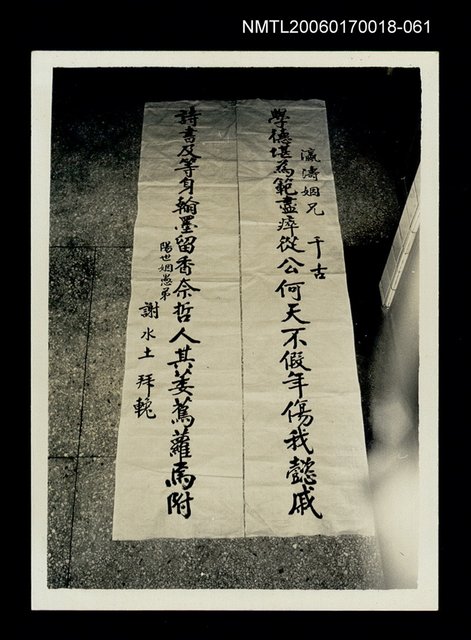 NMTL20060170018-061
瀛濤姻兄 千古
學德堪為範盡瘁從公何天不假年傷我懿戚
詩書及等身翰墨留香奈哲人其萎蔦蘿焉附
陽世姻愚弟 謝水土 拜輓